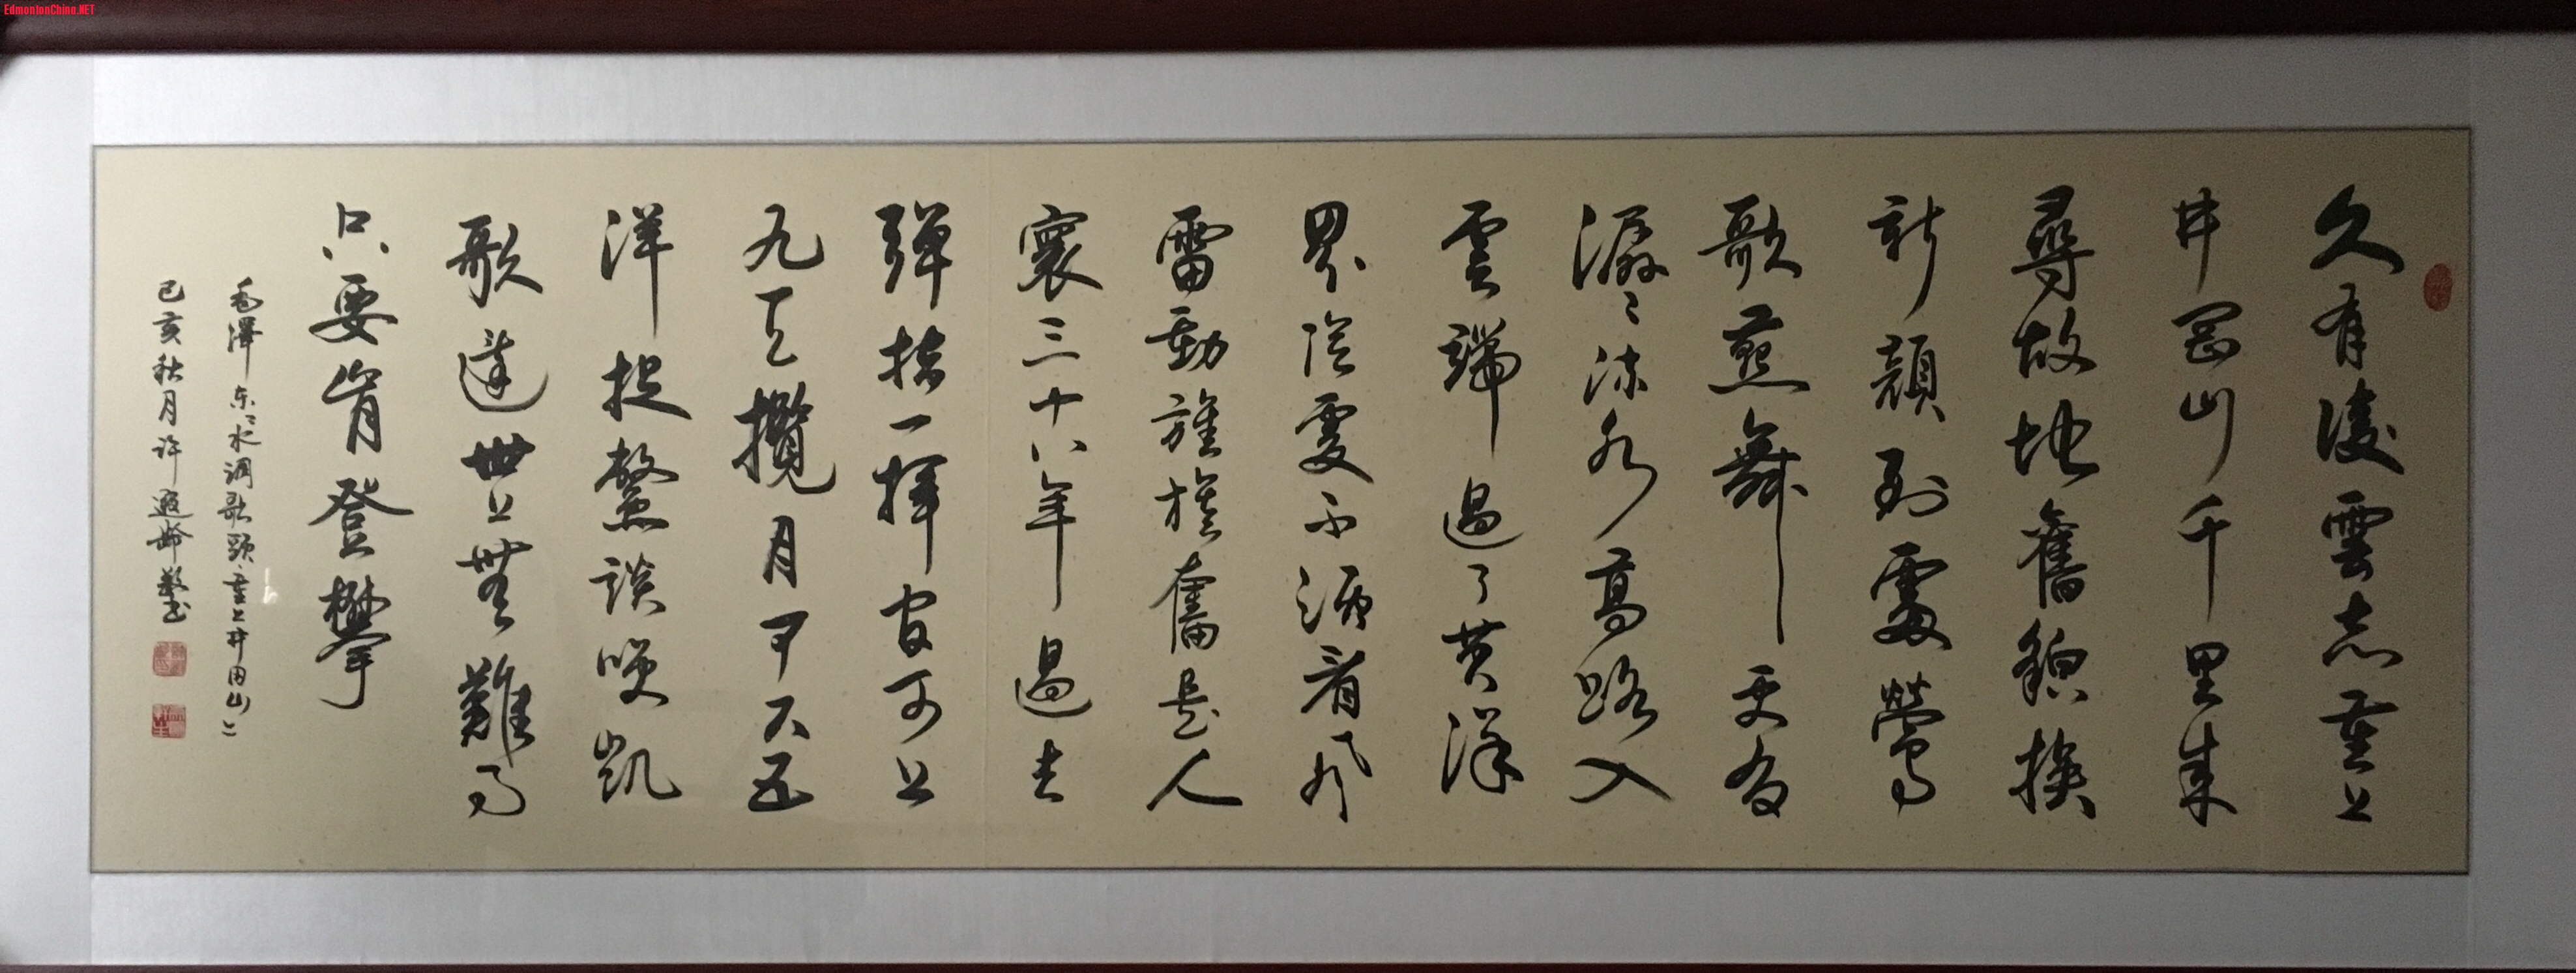 EdmontonChina.NET
久有凌雲志重上
井岡山千里來
尋故地舊貌換
新顔到處鶯
歌燕舞更有
潺〻流水高路入
雲端過了黄洋
界險處不須看風
雷動旌旗奮是人
寰三十八年過去
彈指一揮間可上
九天攬月可下五
洋捉鱉談笑凱
歌還世上無難事
只要肯登攀
毛澤东〻水调歌頭重上井岡山〻
己亥秋月许遐齡敬書